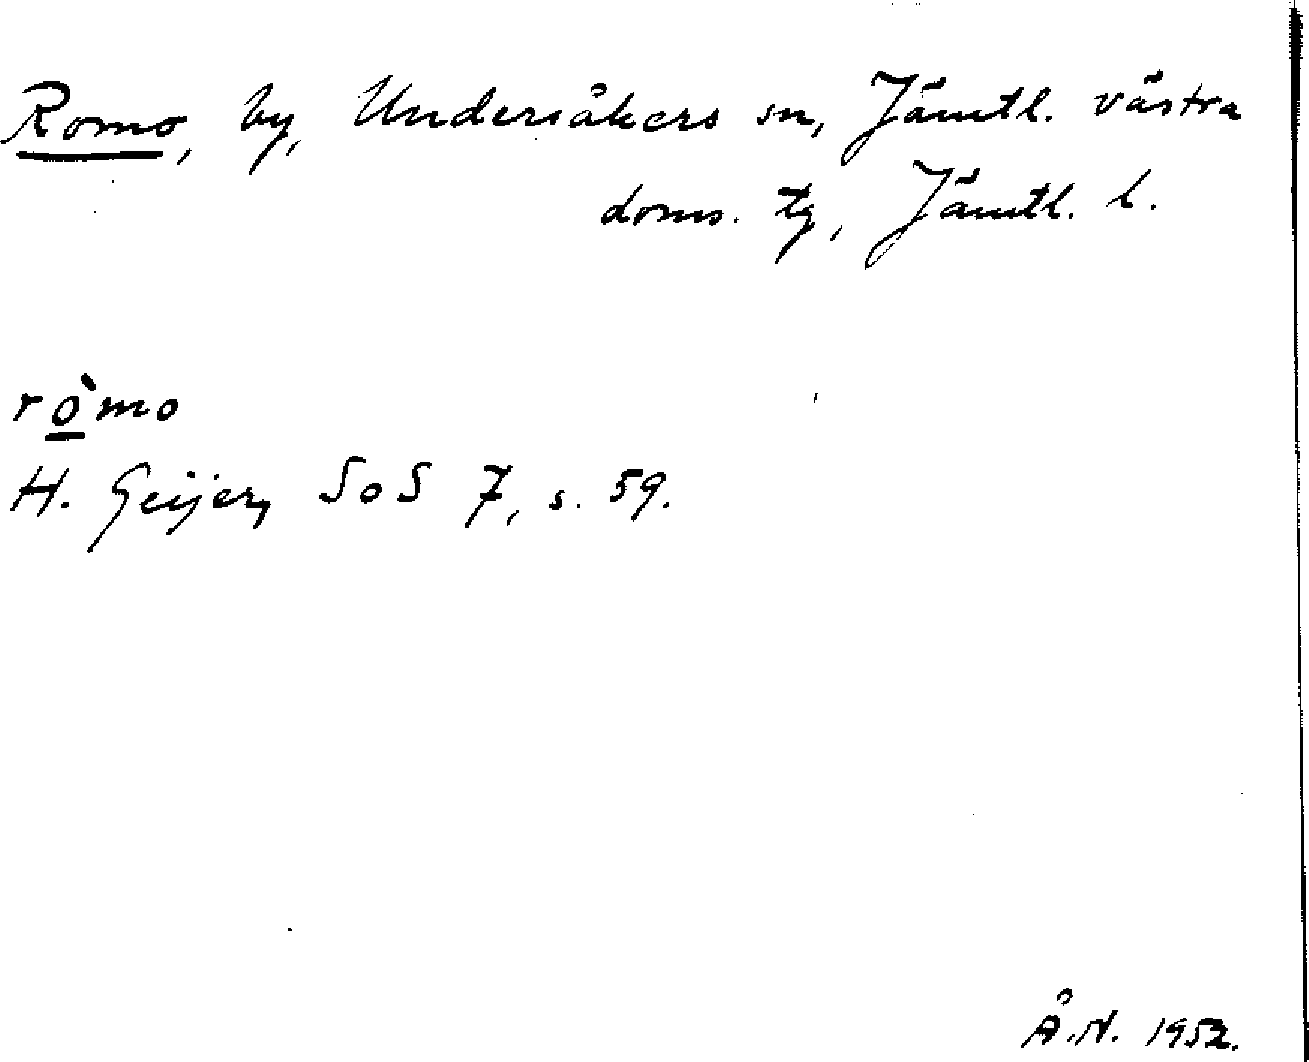 Romo, by, Undersåkers sn, Jämtl. västra
doms. tg, Jämtl. l.
rò̲mo
H. Geijer, SoS 7, s. 59.
Å.N. 1952.